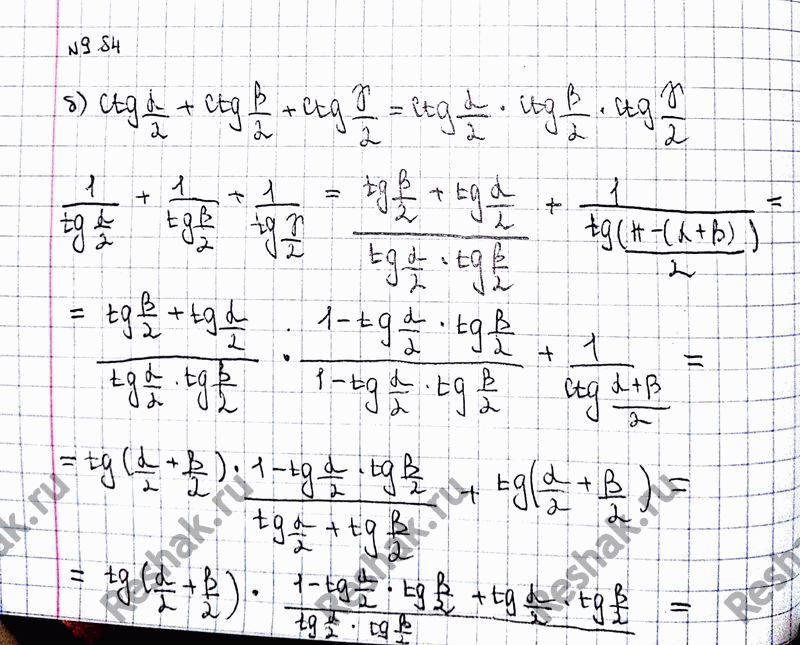 №9 84
б) ctg α/2 + ctg β/2 + ctg γ/2 = ctg α/2 · ctg β/2 · ctg γ/2
1/(tg α/2) + 1/(tg β/2) + 1/(tg γ/2) = (tg β/2 + tg α/2)/(tg α/2 · tg β/2) + 1/(tg (π-(α+β))/2) =
= (tg β/2 + tg α/2)/(tg α/2 · tg β/2) · (1-tg α/2 · tg β/2)/(1-tg α/2 · tg β/2) + 1/(ctg (α+β)/2) =
= tg(α/2 + β/2) · (1-tg α/2 · tg β/2)/(tg α/2 + tg β/2) + tg(α/2 + β/2) =
= tg(α/2 + β/2) · (1-tg α/2 · tg β/2 + tg α/2 · tg β/2)/(tg α/2 · tg β/2) =
Reshak.ru
Reshak.ru
Reshak.ru
Reshak.ru